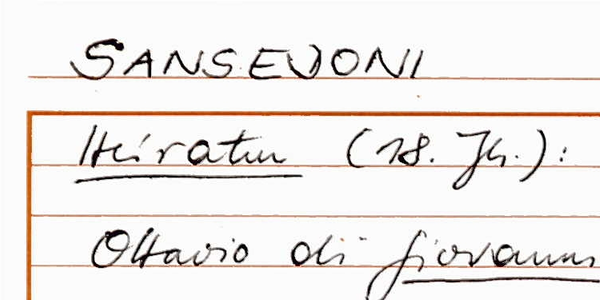 SANSEDONI
Heiraten (18. Jh.):
Ottavio di Giovanni